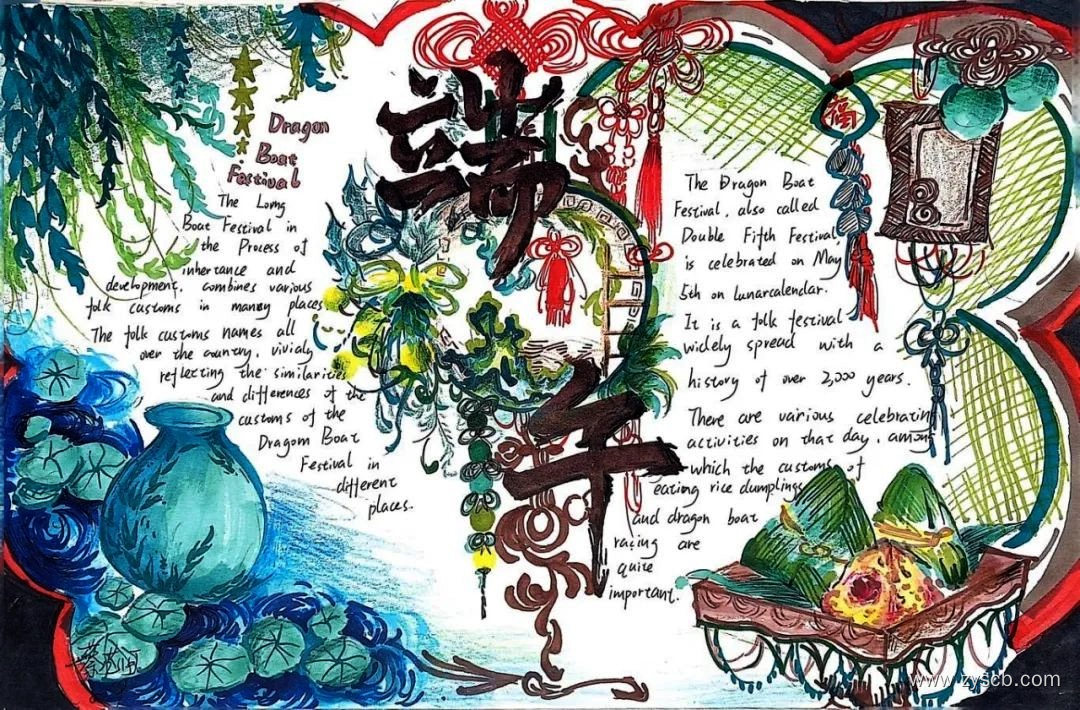 端午
Dragon
Boat
Festival
The Lorng
Boat Festival in
the Process of
inhertance and
development, combines various
folk customs in manny places
The folk customs names all
over the country, vivialy
reflecting the similarities
and differences of the
customs of the
Dragom Boat
Festival in
different
places.
福
The Dragon Boat
Festival, also called
Double Fifth Festival,
is celebrated on May
5th on lunarcalendar.
It is a folk festival
widely spread with a
history of over 2,000 years.
There are various celebrating
activities on that day, among
which the customs of
eating rice dumplings
and dragon boat
racing are
quite
important.
www.zyscb.com